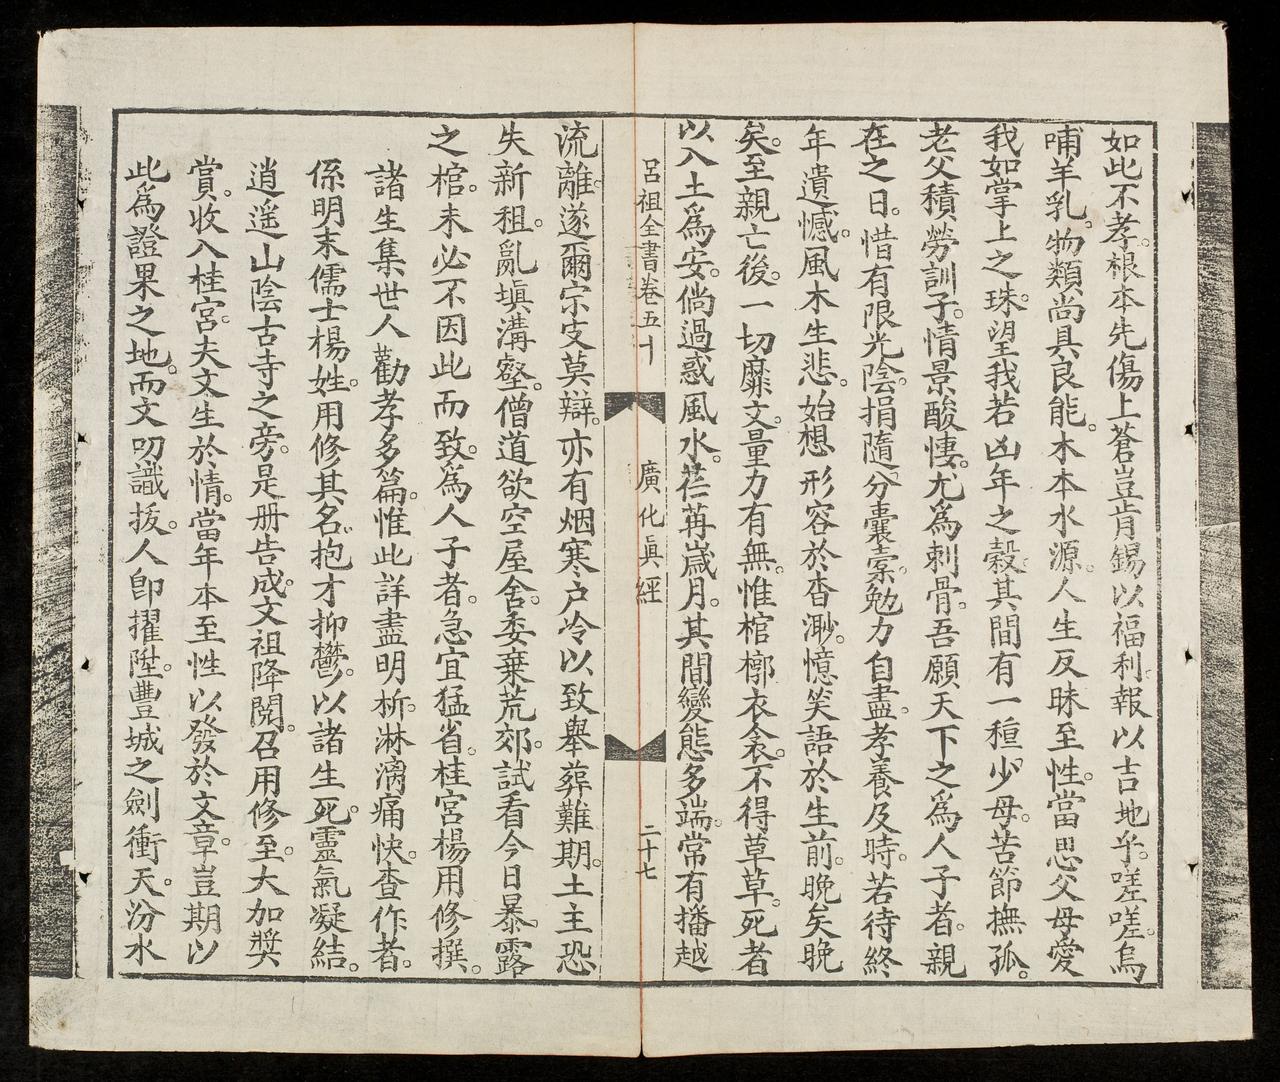 如此不孝。根本先傷。上蒼豈肯錫以福利。報以吉地乎。嗟嗟。烏
哺羊乳。物類尚具良能。木本水源。人生反昧至性。當思父母愛
我如掌上之珠。望我若凶年之穀。其間有一種少母。苦節撫孤。
老父積勞訓子。情景酸悽。尤為刺骨。吾願天下之為人子者。親
在之日。惜有限光陰。捐隨分囊橐。勉力自盡。孝養及時。若待終
年遺憾。風木生悲。始想形容於杳渺。憶笑語於生前。晚矣晚
矣。至親亡後。一切靡文。量力有無。惟棺槨衣衾。不得草草。死者
以入土為安。倘過惑風水。荏苒歲月。其間變態多端。常有播越
呂祖全書卷五十
廣化眞經
二十七
流離。遂爾宗支莫辯。亦有烟寒戶冷。以致舉葬難期。土主恐
失新租。亂塡溝壑。僧道欲空屋舍。委棄荒郊。試看今日暴露
之棺。未必不因此而致。為人子者。急宜猛省。桂宮楊用修撰。
諸生集世人勸孝多篇。惟此詳盡明析。淋漓痛快。查作者。
係明末儒士楊姓。用修其名。抱才抑鬱。以諸生死。靈氣凝結。
逍遥山陰古寺之旁。是册告成。文祖降閱。召用修至。大加獎
賞。收入桂宮。夫文生於情。當年本至性以發於文章。豈期以
此爲證果之地。而文叨識拔。人卽擢陞。豐城之劍衝天。汾水